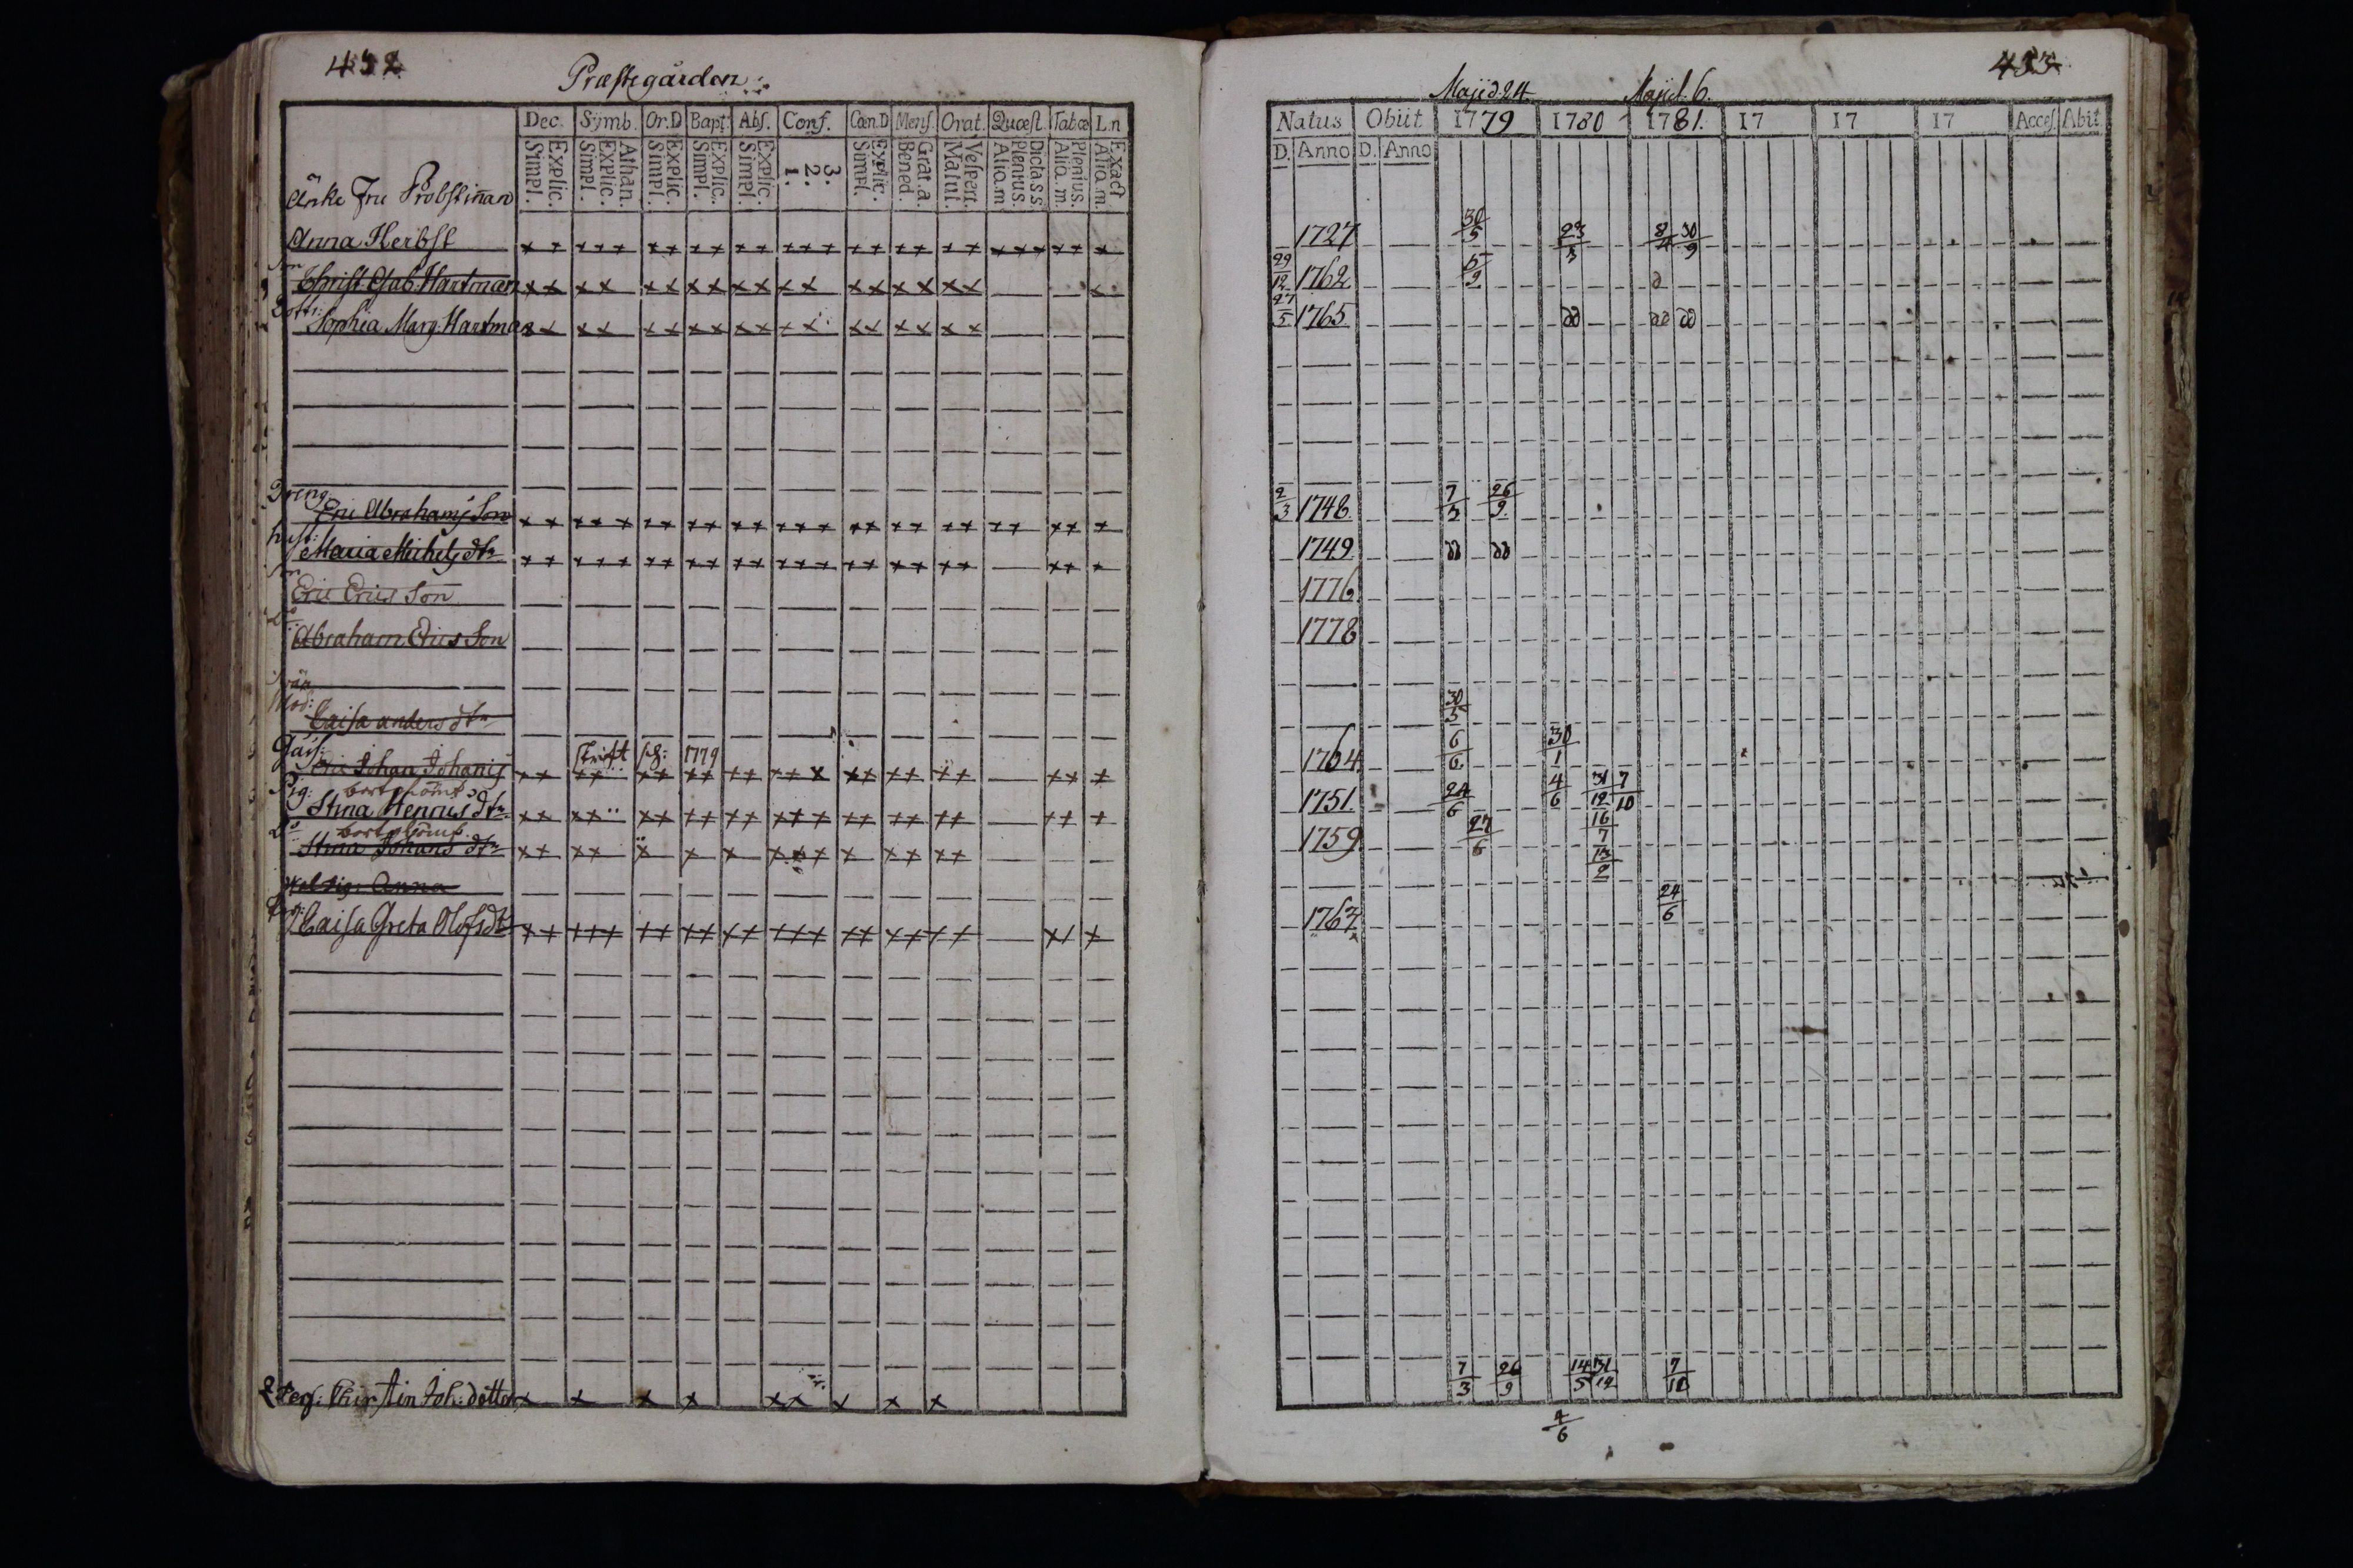 452
Præstegården
Dec. Symb. Or.D Bapt. Abs. Conf. Cœn.D Mens. Orat. Quæst. Tabœ L.n
Explic. Simpl. Athan. Explic. Simpl. Explic. Simpl. Explic. Simpl. Explic. Simpl. 3. 2. 1. Explic. Simpl. Grat.a. Bened. Vespert. Matut. Dicta s.s. Plenius. Aliq.m Plenius. Aliq.m. Exact Aliq.m.
Änke Fru Probstinnan
Anna Herbst
Son
Christ. Gab. Hartman
Dottr:
Sophia Marg. Hartman
Dreng
Eric Abrahams Son
hust:
Maria Michels dtr
Son
Eric Erics Son
Do
Abraham Erics Son
Mod:
Caisa anders dtr
skrift 1779
Johan Johanis
Pig: bortrömt
Stina Henrics dtr
Do bortrömt
Stina Johans dtr
Pig: Anna
Caisa Greta Olofs dtr
Chirstin Joh: dotter
453
Maji d. 24. Maji d. 6.
Natus Obiit 1779 1780 1781. 17 17 17 Acces. Abit
D. Anno D. Anno
1727 30/5 23/3 8/4 30/9
29/12 1762 5/9
27/5 1765 dd dd dd
2/3 1748 7/3 26/9
1749 dd dd
1776
1778
30/5
1764 6/6 30/1
1751 24/6 4/6 31/12 7/10
1759 27/6 16/7
13/2
1763 24/6
7/3 26/9 14/5 31/12 7/10
4/6